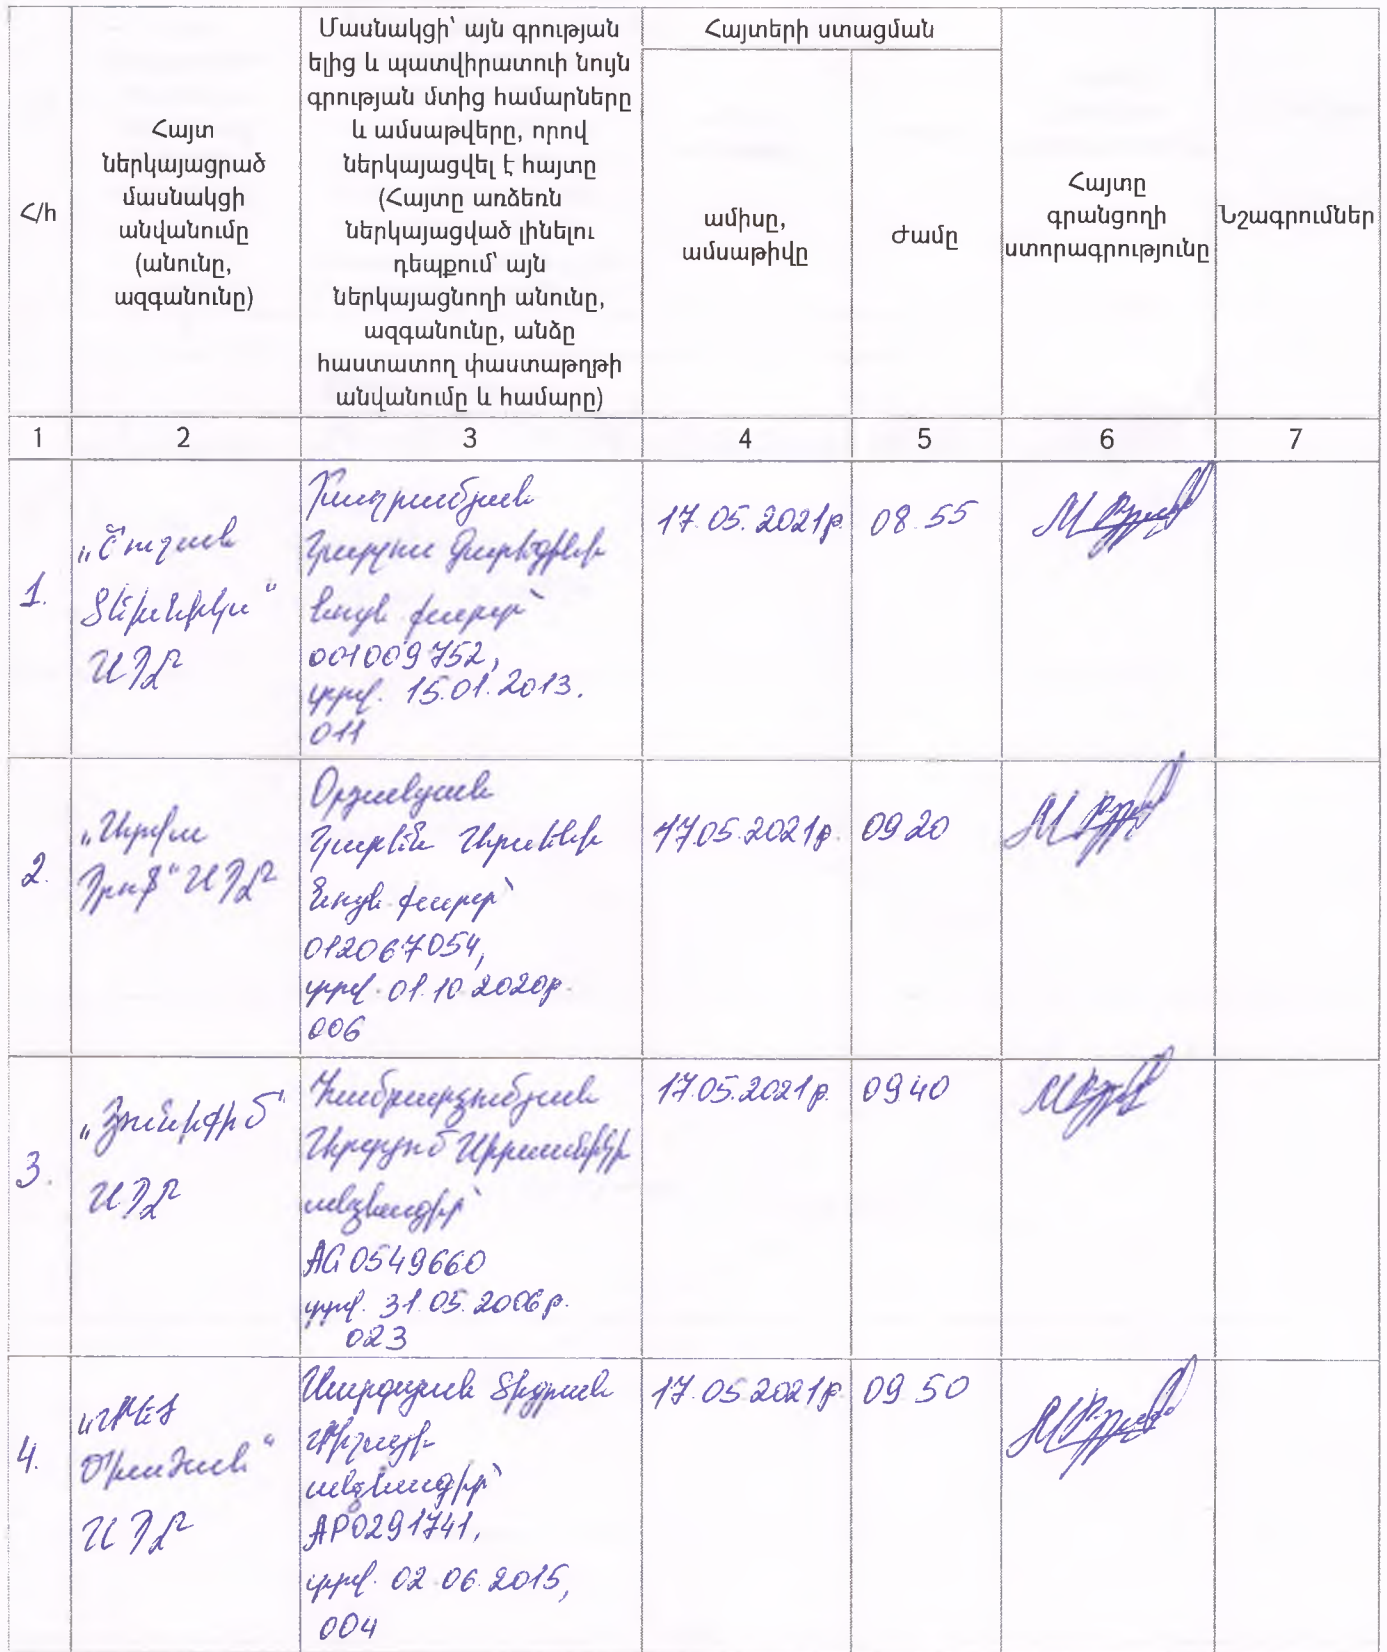 Հ/հ
Հայտ
ներկայացրած
մասնակցի
անվանումը
(անունը,
ազգանունը)
Մասնակցի՝ այն գրության
ելից և պատվիրատուի նույն
գրության մտից համարները
և ամսաթվերը, որով
ներկայացվել է հայտը
(Հայտը առձեռն
ներկայացված լինելու
դեպքում՝ այն
ներկայացնողի անունը,
ազգանունը, անձը
հաստատող փաստաթղթի
անվանումը և համարը)
Հայտերի ստացման
ամիսը,
ամսաթիվը
ժամը
Հայտը
գրանցողի
ստորագրությունը
Նշագրումներ
1 2 3 4 5 6 7
1.
Տեխնիկա“
ՍՊԸ
նույն. քարտ՝
001009752,
տրվ. 15.01.2013.
011
17.05.2021թ. 08 55
2.
ՍՊԸ
Կարեն
նույն. քարտ՝
012067054,
տրվ. 01.10.2020թ.
006
17.05.2021թ. 09 20
3.
ՍՊԸ
անձնագիր՝
AG0549660
տրվ. 31.05.2006թ.
023
17.05.2021թ. 09 40
4.
ՍՊԸ
Սարգսյան Տիգրան
անձնագիր՝
AP0291741,
տրվ. 02.06.2015,
004
17.05.2021թ 09 50